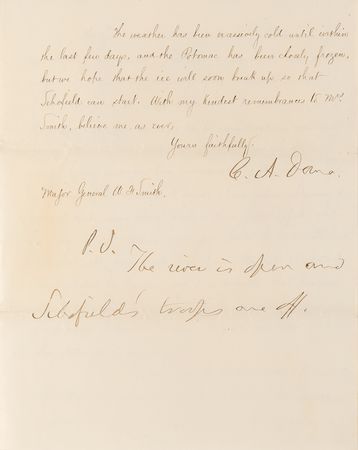 The weather has been excessively cold until within
the last few days, and the Potomac has been closely frozen,
but we hope that the ice will soon break up so that
Schofield can start. With my kindest remembrances to Mrs.
Smith, believe me as ever,
Yours faithfully,
C. A. Dana.
Major General W. F. Smith.
P.S. The river is open and
Schofield's troops are off.